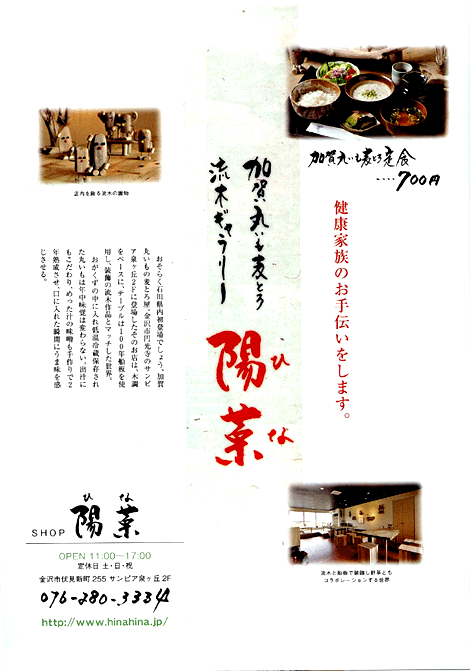 加賀丸いも麦とろ定食
‥‥700円
加賀丸いも麦とろ
流木ギャラリー
陽菜
ひな
健康家族のお手伝いをします。
店内を飾る流木の置物
おそらく石川県内初登場でしょう、加賀
丸いもの麦とろ屋。金沢市円光寺のサンピ
ア泉ヶ丘2Fに登場したそのお店は、木調
をベースに、テーブルは100年船板を使
用し、装飾の流木作品とマッチした世界。
おがくずの中に入れ低温冷蔵保存され
た丸いもは年中味覚は変わらない。出汁に
もこだわり、めった汁の味噌も手作りで2
年熟成させ、口に入れた瞬間にうま味を感
じさせる。
流木と船板で装飾し野草とも
コラボレーションする世界
ひな
SHOP 陽菜
OPEN 11.00〜17:00
定休日 土・日・祝
金沢市伏見新町255 サンピア泉ヶ丘2F
076-280-3334
http://www.hinahina.jp/